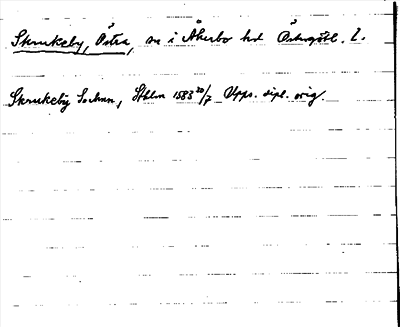 Skrukeby, Östra, sn i Åkerbo hd Östergötl. l.
Skrukeby Sochnn, Sthlm 1583 30/7 Upps. dipl. orig.